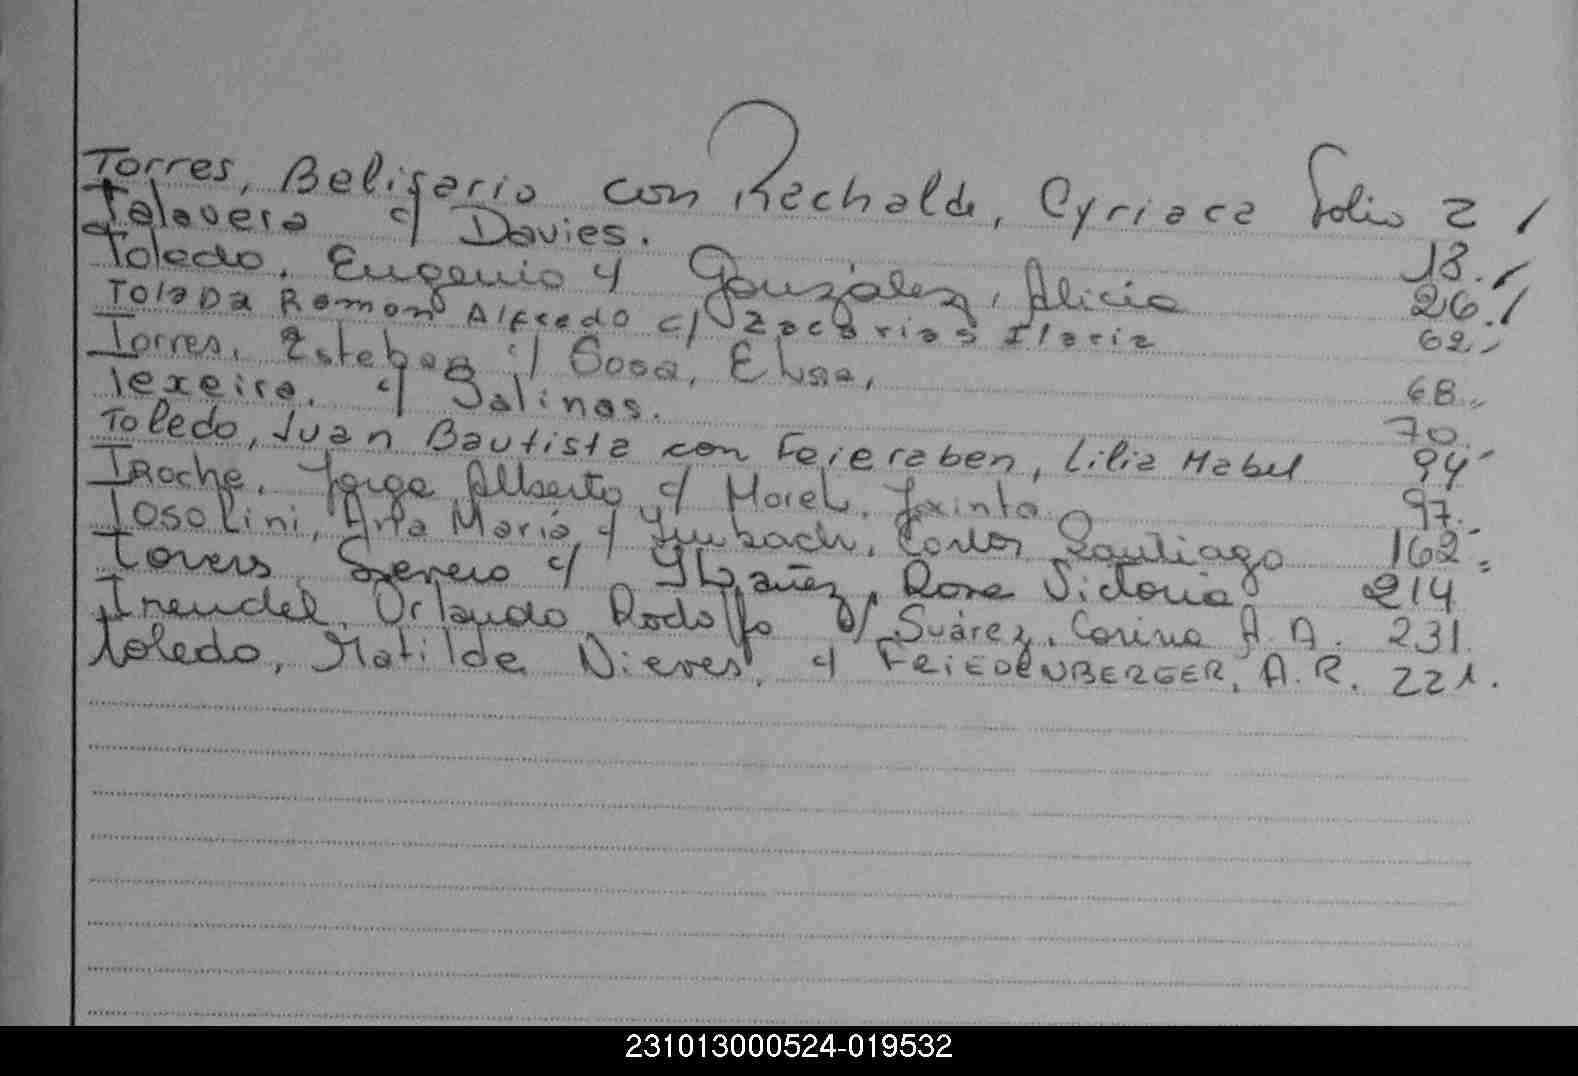 Torres, Belisario con Rechalde, Cyriaca Folio 2 /
Talavera c/ Davies. 13. /
Toledo, Eugenio c/ González, Alicia 26. /
Tolaba Ramon Alfredo c/ Zacarias Ilaria 62
Torres, Esteban c/ Sosa, Elisa, 68
Texeira, c/ Salinas. 70.
Toledo, Juan Bautista con Feieraben, Lilia Mabel 94
TRoche, Jorge Alberto c/ Morel, Jacinta 97.
Tosolini, Ana María, c/ Carlos Santiago 162
Torres, Severo c/ Ybañez, Rosa Victoria 214
Treudel, Orlando Rodolfo c/ Suárez, Corina A. A. 231.
Toledo, Matilde Nieves, c/ FRIEDENBERGER, A. R. 221.
231013000524-019532